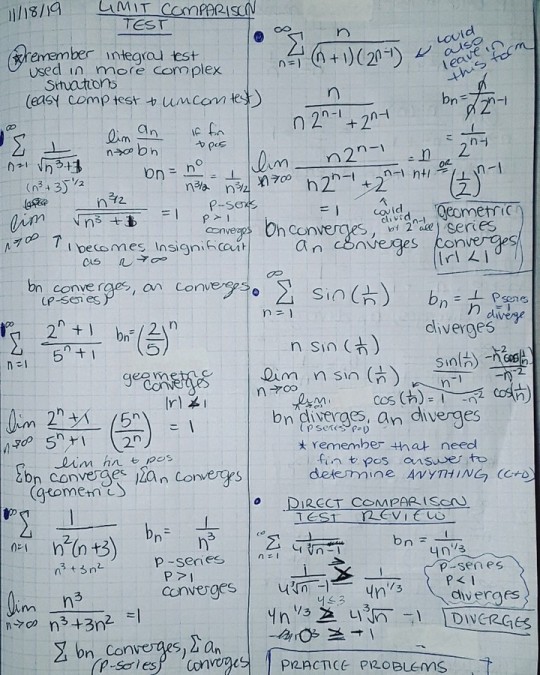 11/18/19 LIMIT COMPARISON
TEST
* remember integral test
used in more complex
situations
(easy comp test +
∞
Σ 1/√n³+3
n=1
(n³+3)^1/2
lim an/bn if fin
n→∞ + pos
bn = n⁰/n^3/2 = 1/n^3/2
lim n^3/2/√n³+3 = 1
n→∞
p-series
p > 1
converges
↑ 1 becomes insignificant
as n→∞
bn converges, an converges
(p-series)
∞
Σ 2ⁿ+1/5ⁿ+1 bn = (2/5)ⁿ
n=1
geometric
converges
|r| < 1
lim 2ⁿ+1/5ⁿ+1 (5ⁿ/2ⁿ) = 1
n→∞
lim fin + pos
Σbn converges, Σan converges
(geometric)
∞
Σ 1/n²(n+3) bn = 1/n³
n=1
n³+3n²
p-series
p>1
converges
lim n³/n³+3n² = 1
n→∞
Σ bn converges, Σ an
(p-series) converges
∞
Σ n/(n+1)(2ⁿ⁻¹)
n=1
could
also
leave in
this form
n/n2ⁿ⁻¹+2ⁿ⁻¹
bn = n/n2ⁿ⁻¹
= 1/2ⁿ⁻¹
or
(1/2)ⁿ⁻¹
lim n2ⁿ⁻¹/n2ⁿ⁻¹+2ⁿ⁻¹ = n/n+1
n→∞
= 1
could
divide
by 2ⁿ⁻¹
bn converges,
an converges
geometric
series
converges
|r| < 1
∞
Σ sin(1/n) bn = 1/n p series
n=1
diverge
diverges
n sin(1/n)
lim n sin(1/n)
n→∞
sin(1/n)/n⁻¹ -n⁻²cos(1/n)/-n⁻²
cos(1/n)
cos(1/n) = 1
bn diverges, an diverges
(p series p=1)
* remember that need
fin + pos answer to
determine ANYTHING (C+D)
DIRECT COMPARISON
TEST REVIEW
∞
Σ 1/4∛n-1 bn = 1/4n^1/3
n=1
1/4∛n-1 ≥ 1/4n^1/3
4n^1/3 ≥ 4∛n -1
0 ≥ -1
p-series
p<1
diverges
DIVERGES
PRACTICE PROBLEMS